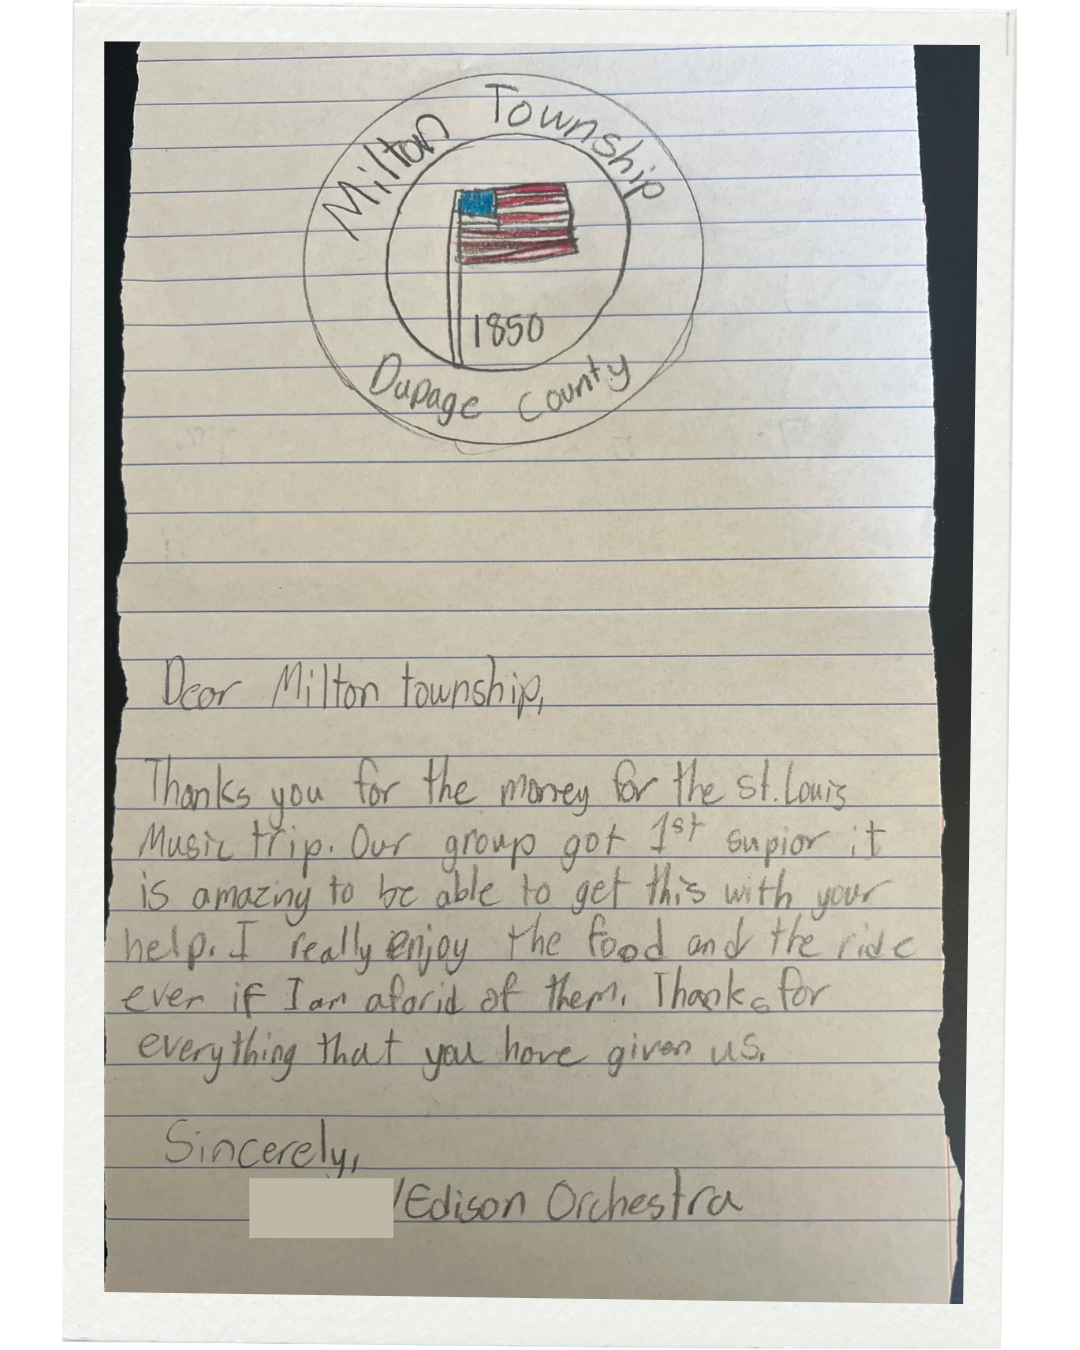 Milton Township
1850
Dupage County
Dear Milton township,
Thanks you for the money for the st. Louis
Music trip. Our group got 1st supior it
is amazing to be able to get this with your
help. I really enjoy the food and the ride
ever if I am aforid of them. Thanks for
everything that you have given us.
Sincerely,
/Edison Orchestra